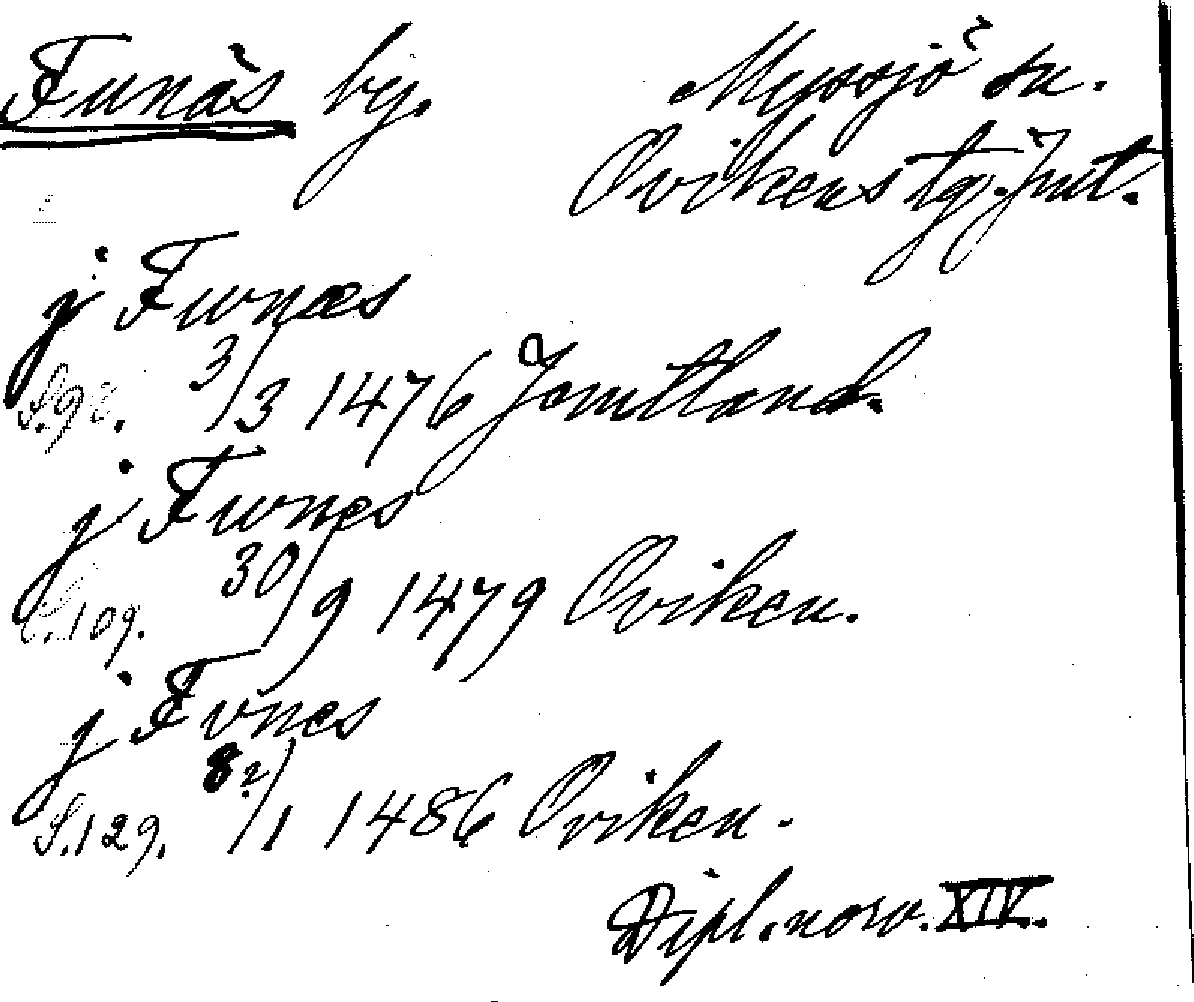 Funäs by. Myssjö sn.
Ovikens tg. Jmt.
j Funæs
S. 3/3 1476 Jamtland.
j Funes
S.109. 30/9 1479 Oviken.
j Fvnes
S.129. 8?/1 1486 Oviken.
Dipl. norv. XIV.